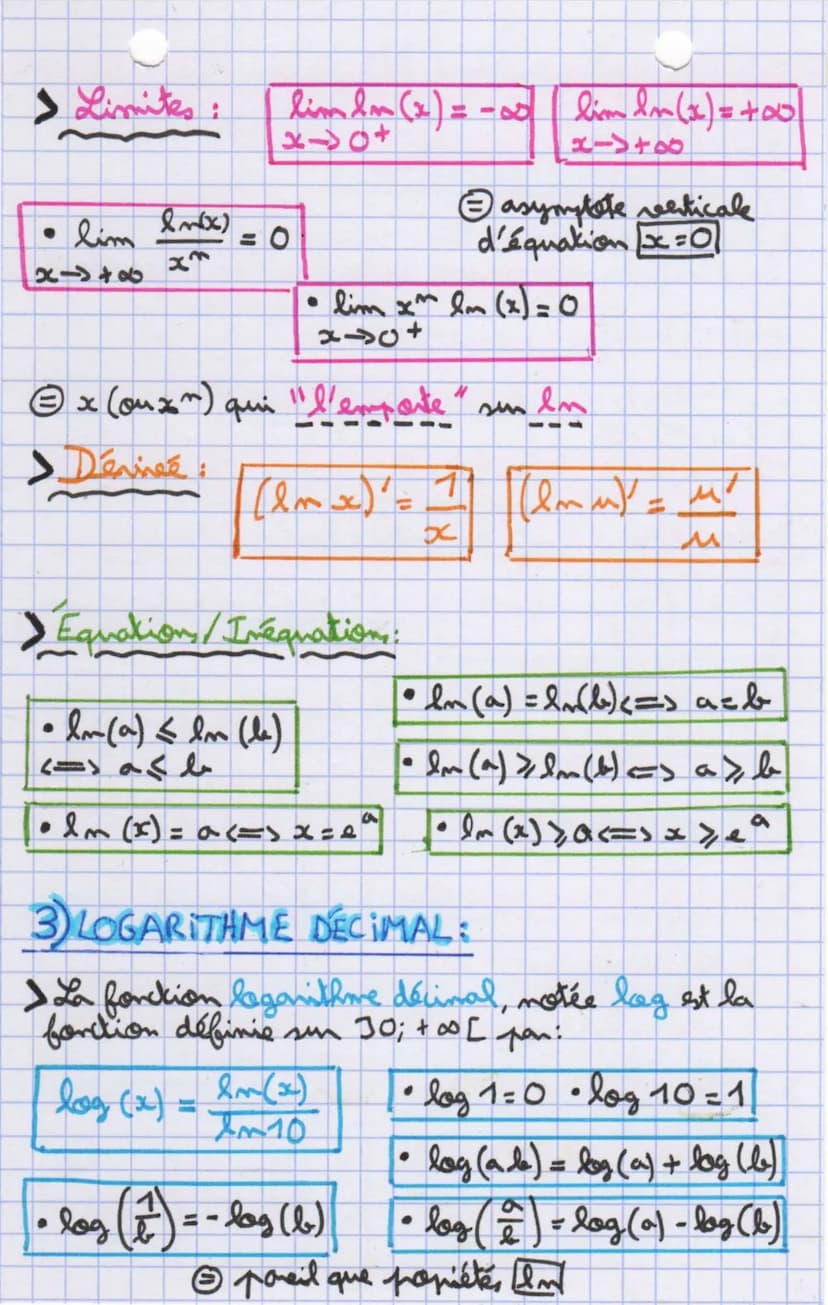 > Limites : lim ln(x) = -∞ lim ln(x) = +∞
x → 0⁺ x → +∞
⊜ asymptote verticale
d'équation x = 0
• lim ln(x)/xⁿ = 0
x → +∞
• lim xⁿ ln (x) = 0
x → 0⁺
⊜ x (ou xⁿ) qui "l'emporte" sur ln
> Dérivée : (ln x)' = 1/x (ln u)' = u'/u
> Équations/Inéquations :
• ln(a) ≤ ln (b)
<=> a ≤ b
• ln (a) = ln(b) <=> a = b
• ln (a) ≥ ln (b) <=> a ≥ b
• ln (x) = a <=> x = eᵃ • ln (x) ≥ a <=> x ≥ eᵃ
3) LOGARITHME DÉCIMAL :
> La fonction logarithme décimal, notée log est la
fonction définie sur ]0; +∞[ par :
log (x) = ln(x)/ln 10
• log 1 = 0 • log 10 = 1
• log (ab) = log (a) + log (b)
• log (1/b) = - log (b) • log (a/b) = log (a) - log (b)
⊜ pareil que propiétés ln